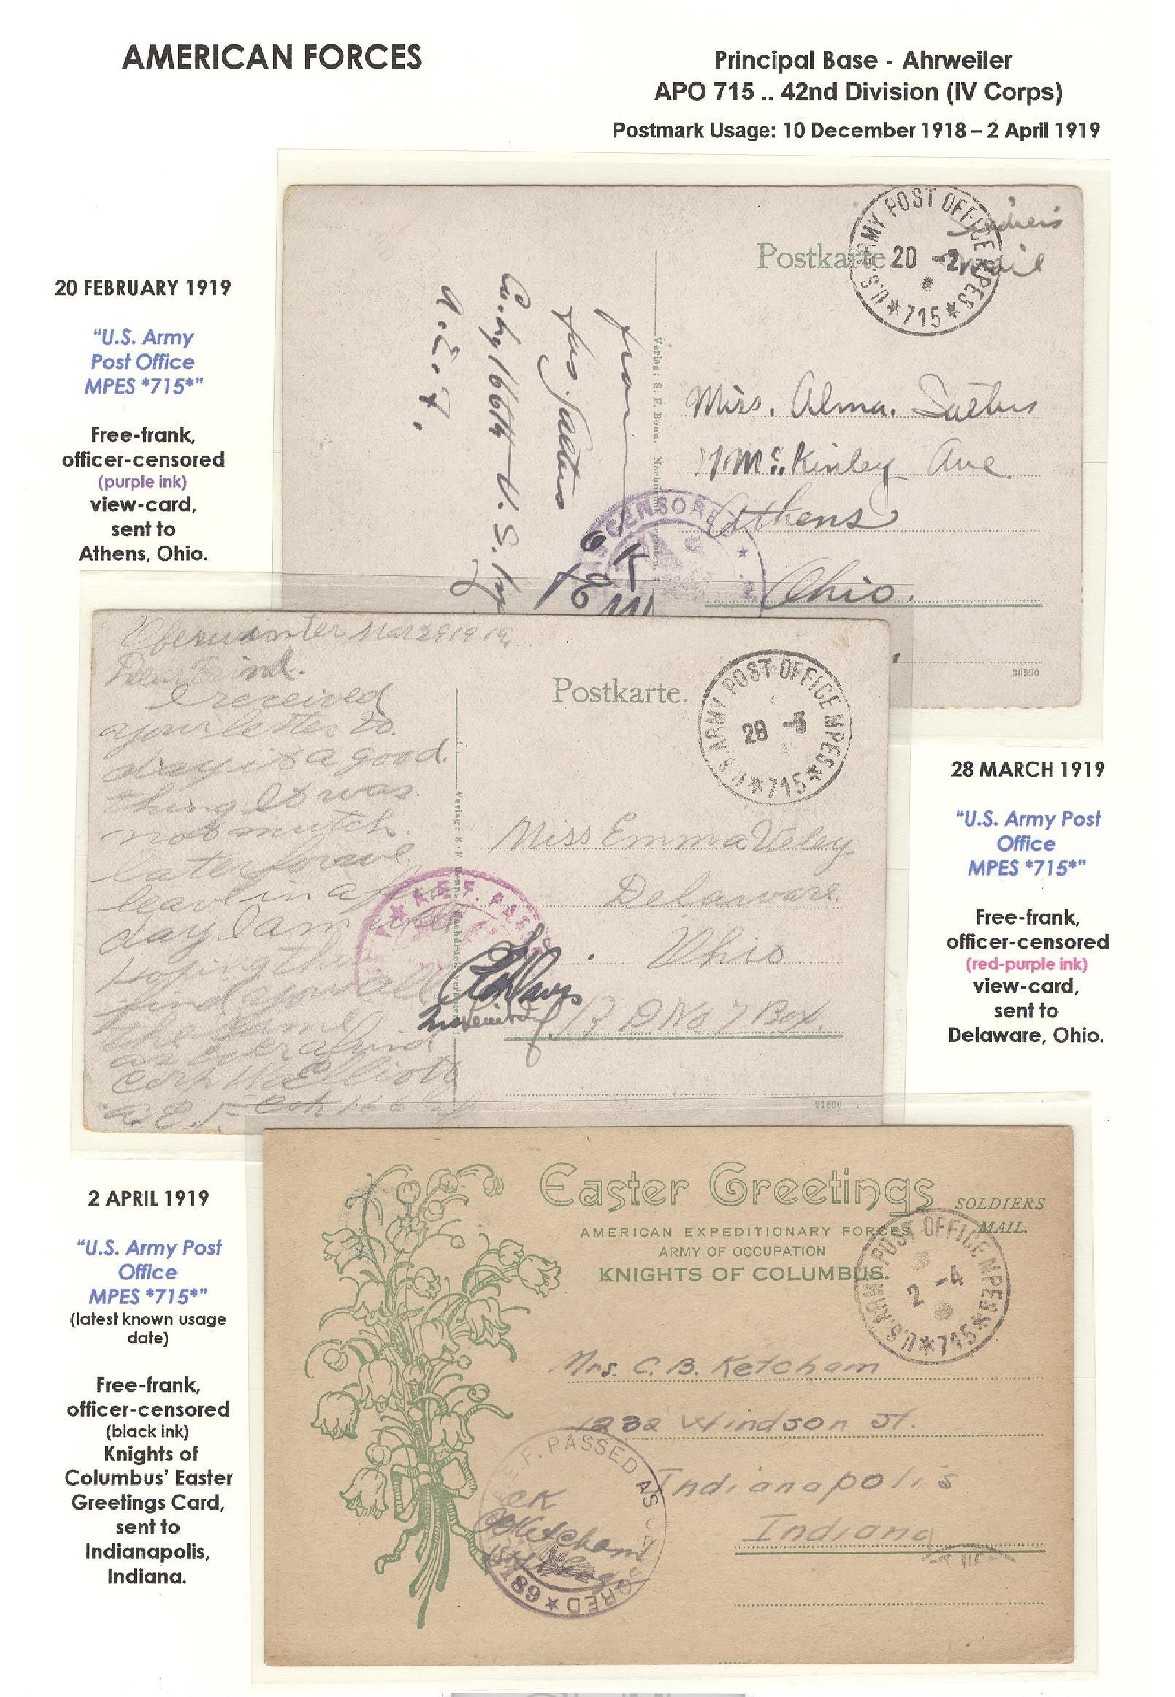 AMERICAN FORCES
Principal Base - Ahrweiler
APO 715 .. 42nd Division (IV Corps)
Postmark Usage: 10 December 1918 – 2 April 1919
20 FEBRUARY 1919
"U.S. Army
Post Office
MPES *715*"
Free-frank,
officer-censored
(purple ink)
view-card,
sent to
Athens, Ohio.
Postkarte
U.S. ARMY POST OFFICE MPES *715*
20 -2
Soldiers
mail
Miss. Alma.
McKinley Ave
Athens
Ohio.
from
Co. 166th U.S. Inf
A.E.F.
CENSORED
OK
30550
28 MARCH 1919
"U.S. Army Post
Office
MPES *715*"
Free-frank,
officer-censored
(red-purple ink)
view-card,
sent to
Delaware, Ohio.
Postkarte.
U.S. ARMY POST OFFICE MPES *715*
28 -3
Dear Friend.
I received
your letter to
day it a good.
thing It was
not mutch.
later for we
leave in a few
day I am well
Hoping this
find you all
the same
as ever
Corp
A.E.F.
A.E.F. PASSED
Miss Emma Veley
Delaware.
Ohio
R D No 7 Box.
2 APRIL 1919
"U.S. Army Post
Office
MPES *715*"
(latest known usage
date)
Free-frank,
officer-censored
(black ink)
Knights of
Columbus' Easter
Greetings Card,
sent to
Indianapolis,
Indiana.
Easter Greetings
SOLDIERS
MAIL.
AMERICAN EXPEDITIONARY FORCES
ARMY OF OCCUPATION
KNIGHTS OF COLUMBUS.
U.S. ARMY POST OFFICE MPES *715*
2 -4
Mrs. C. B. Ketcham
1232 Windson St.
Indianapolis
Indiana
PASSED AS CENSORED
OK
Ketcham